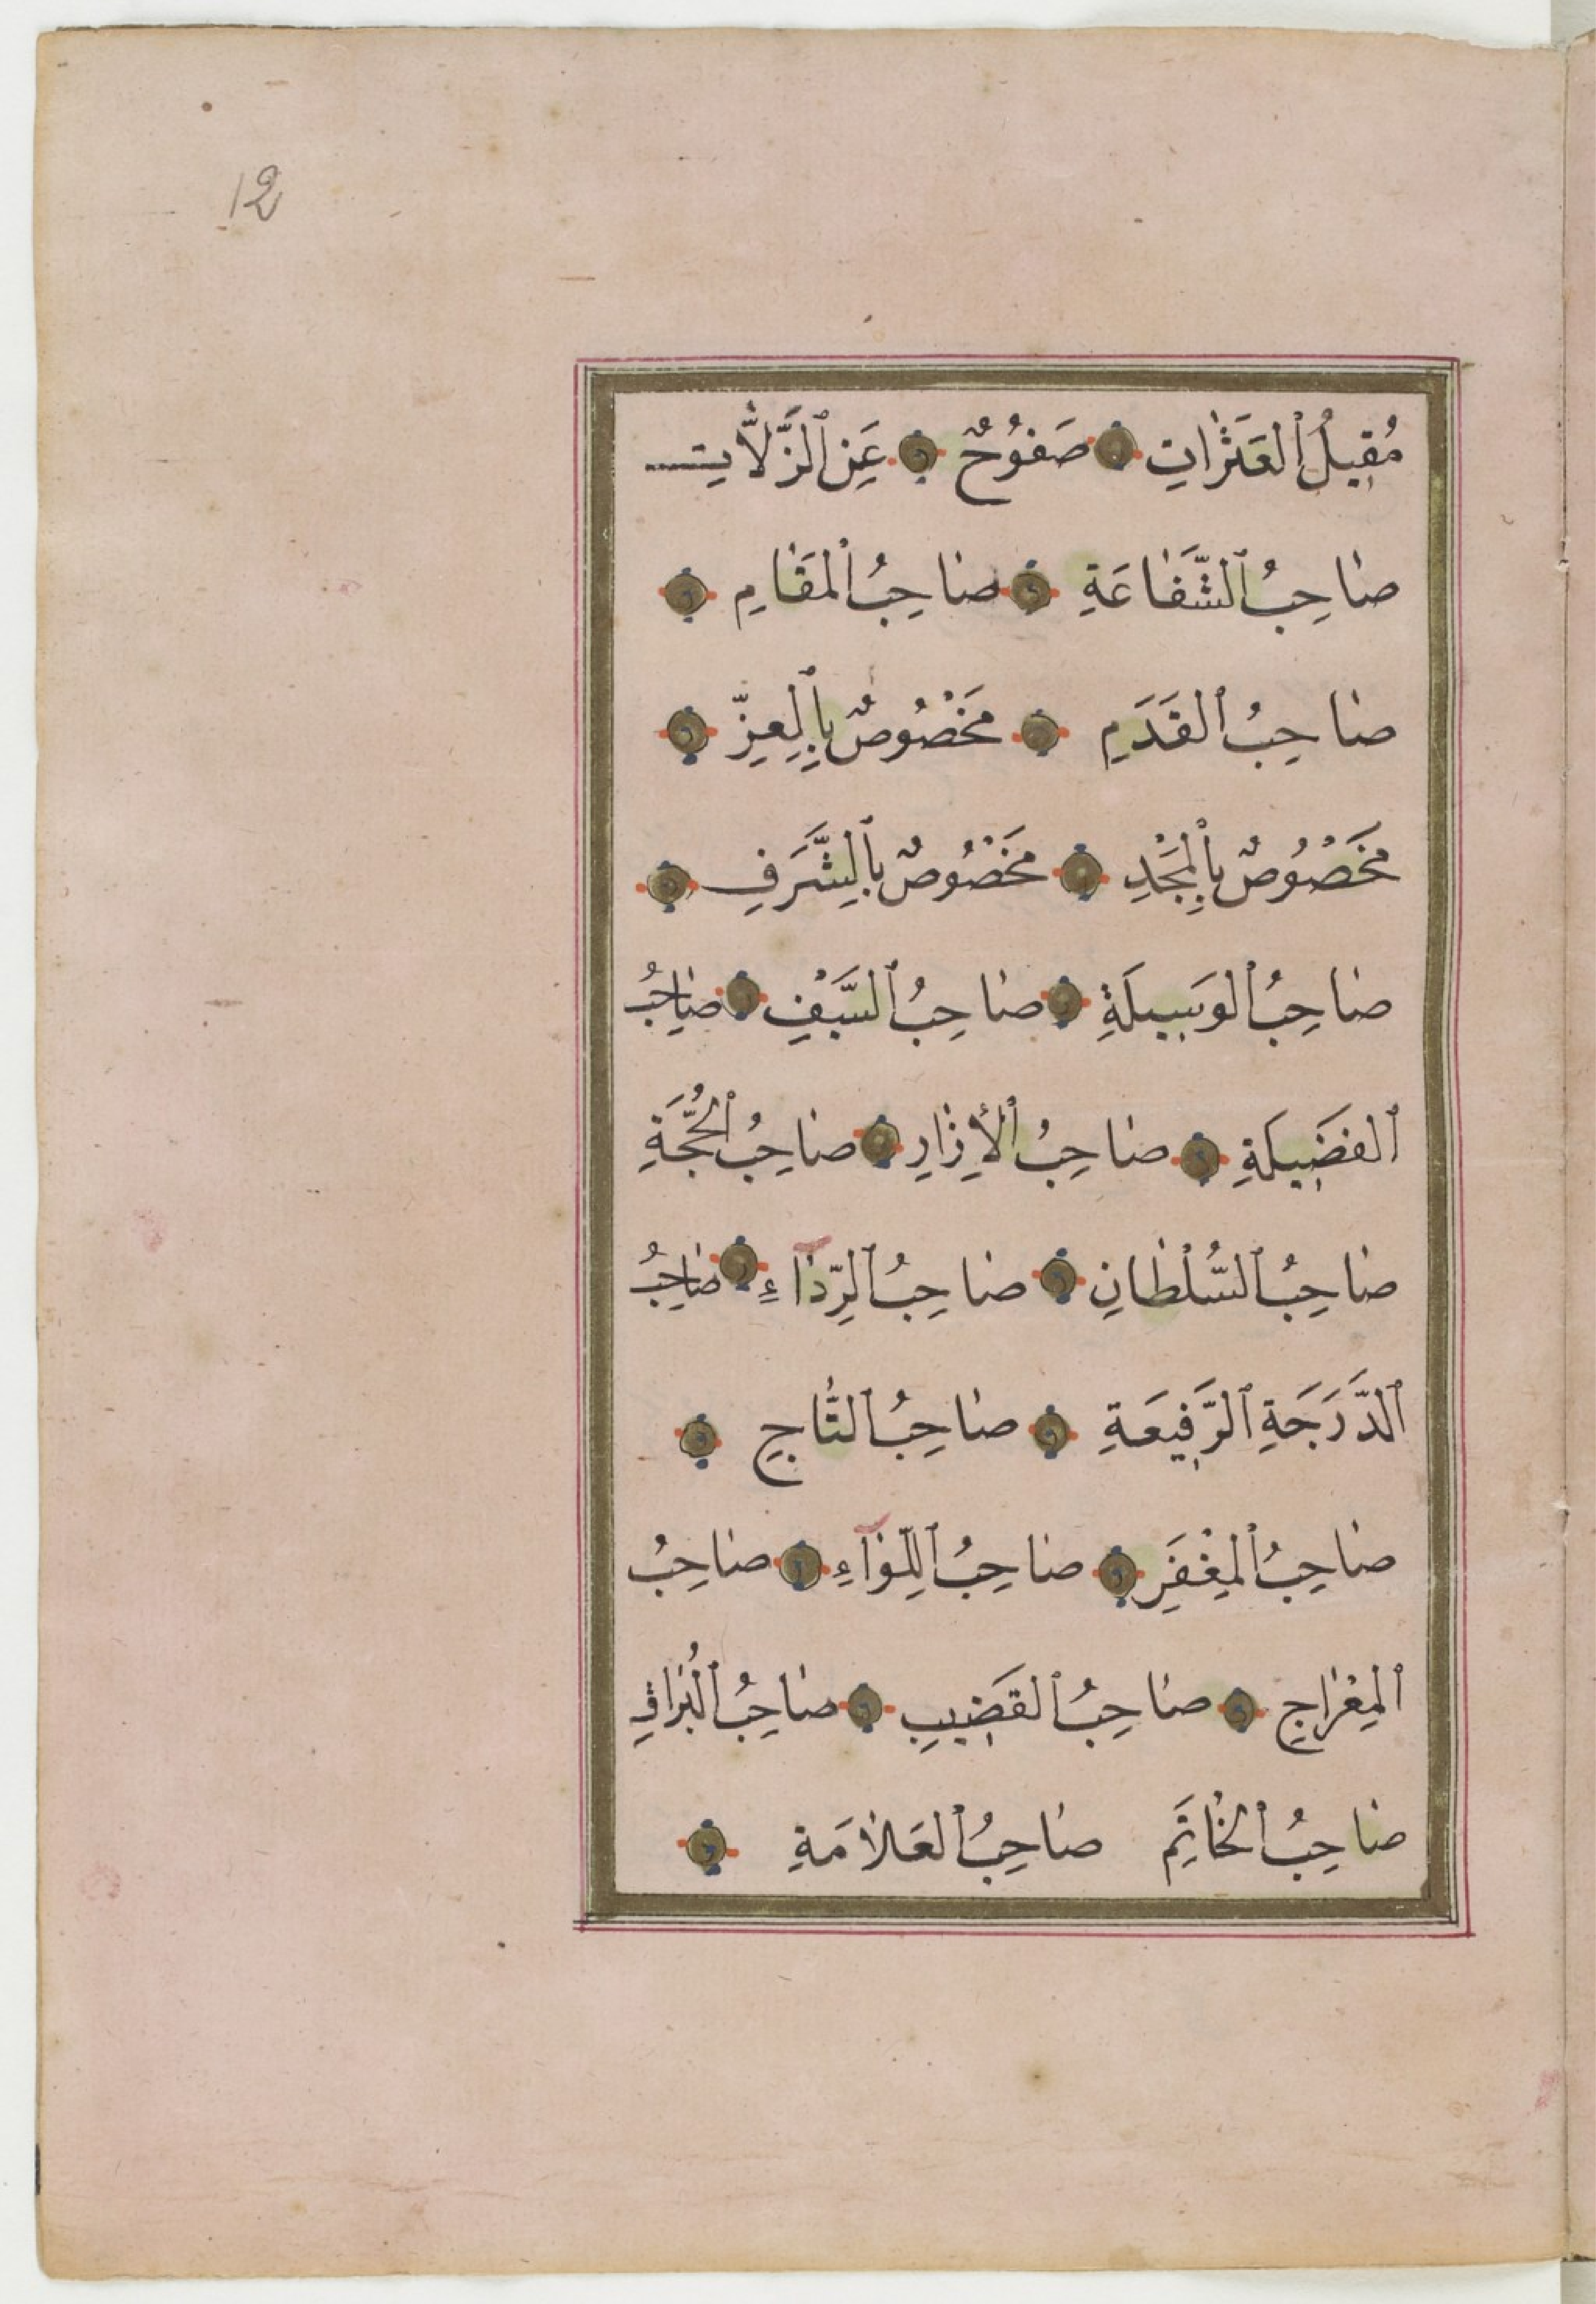 12
مُقِيلُ ٱلْعَثَرَاتِ صَفُوحٌ عَنِ ٱلزَّلَّاتِ
صَاحِبُ ٱلشَّفَاعَةِ صَاحِبُ ٱلْمَقَامِ
صَاحِبُ ٱلْقَدَمِ مَخْصُوصٌ بِٱلْعِزِّ
مَخْصُوصٌ بِٱلْمَجْدِ مَخْصُوصٌ بِٱلشَّرَفِ
صَاحِبُ ٱلْوَسِيلَةِ صَاحِبُ ٱلسَّيْفِ صَاحِبُ
ٱلْفَضِيلَةِ صَاحِبُ ٱلْإِزَارِ صَاحِبُ ٱلْحُجَّةِ
صَاحِبُ ٱلسُّلْطَانِ صَاحِبُ ٱلرِّدَآءِ صَاحِبُ
ٱلدَّرَجَةِ ٱلرَّفِيعَةِ صَاحِبُ ٱلتَّاجِ
صَاحِبُ ٱلْمِغْفَرِ صَاحِبُ ٱللِّوَآءِ صَاحِبُ
ٱلْمِعْرَاجِ صَاحِبُ ٱلْقَضِيبِ صَاحِبُ ٱلْبُرَاقِ
صَاحِبُ ٱلْخَاتَِمِ صَاحِبُ ٱلْعَلَامَةِ